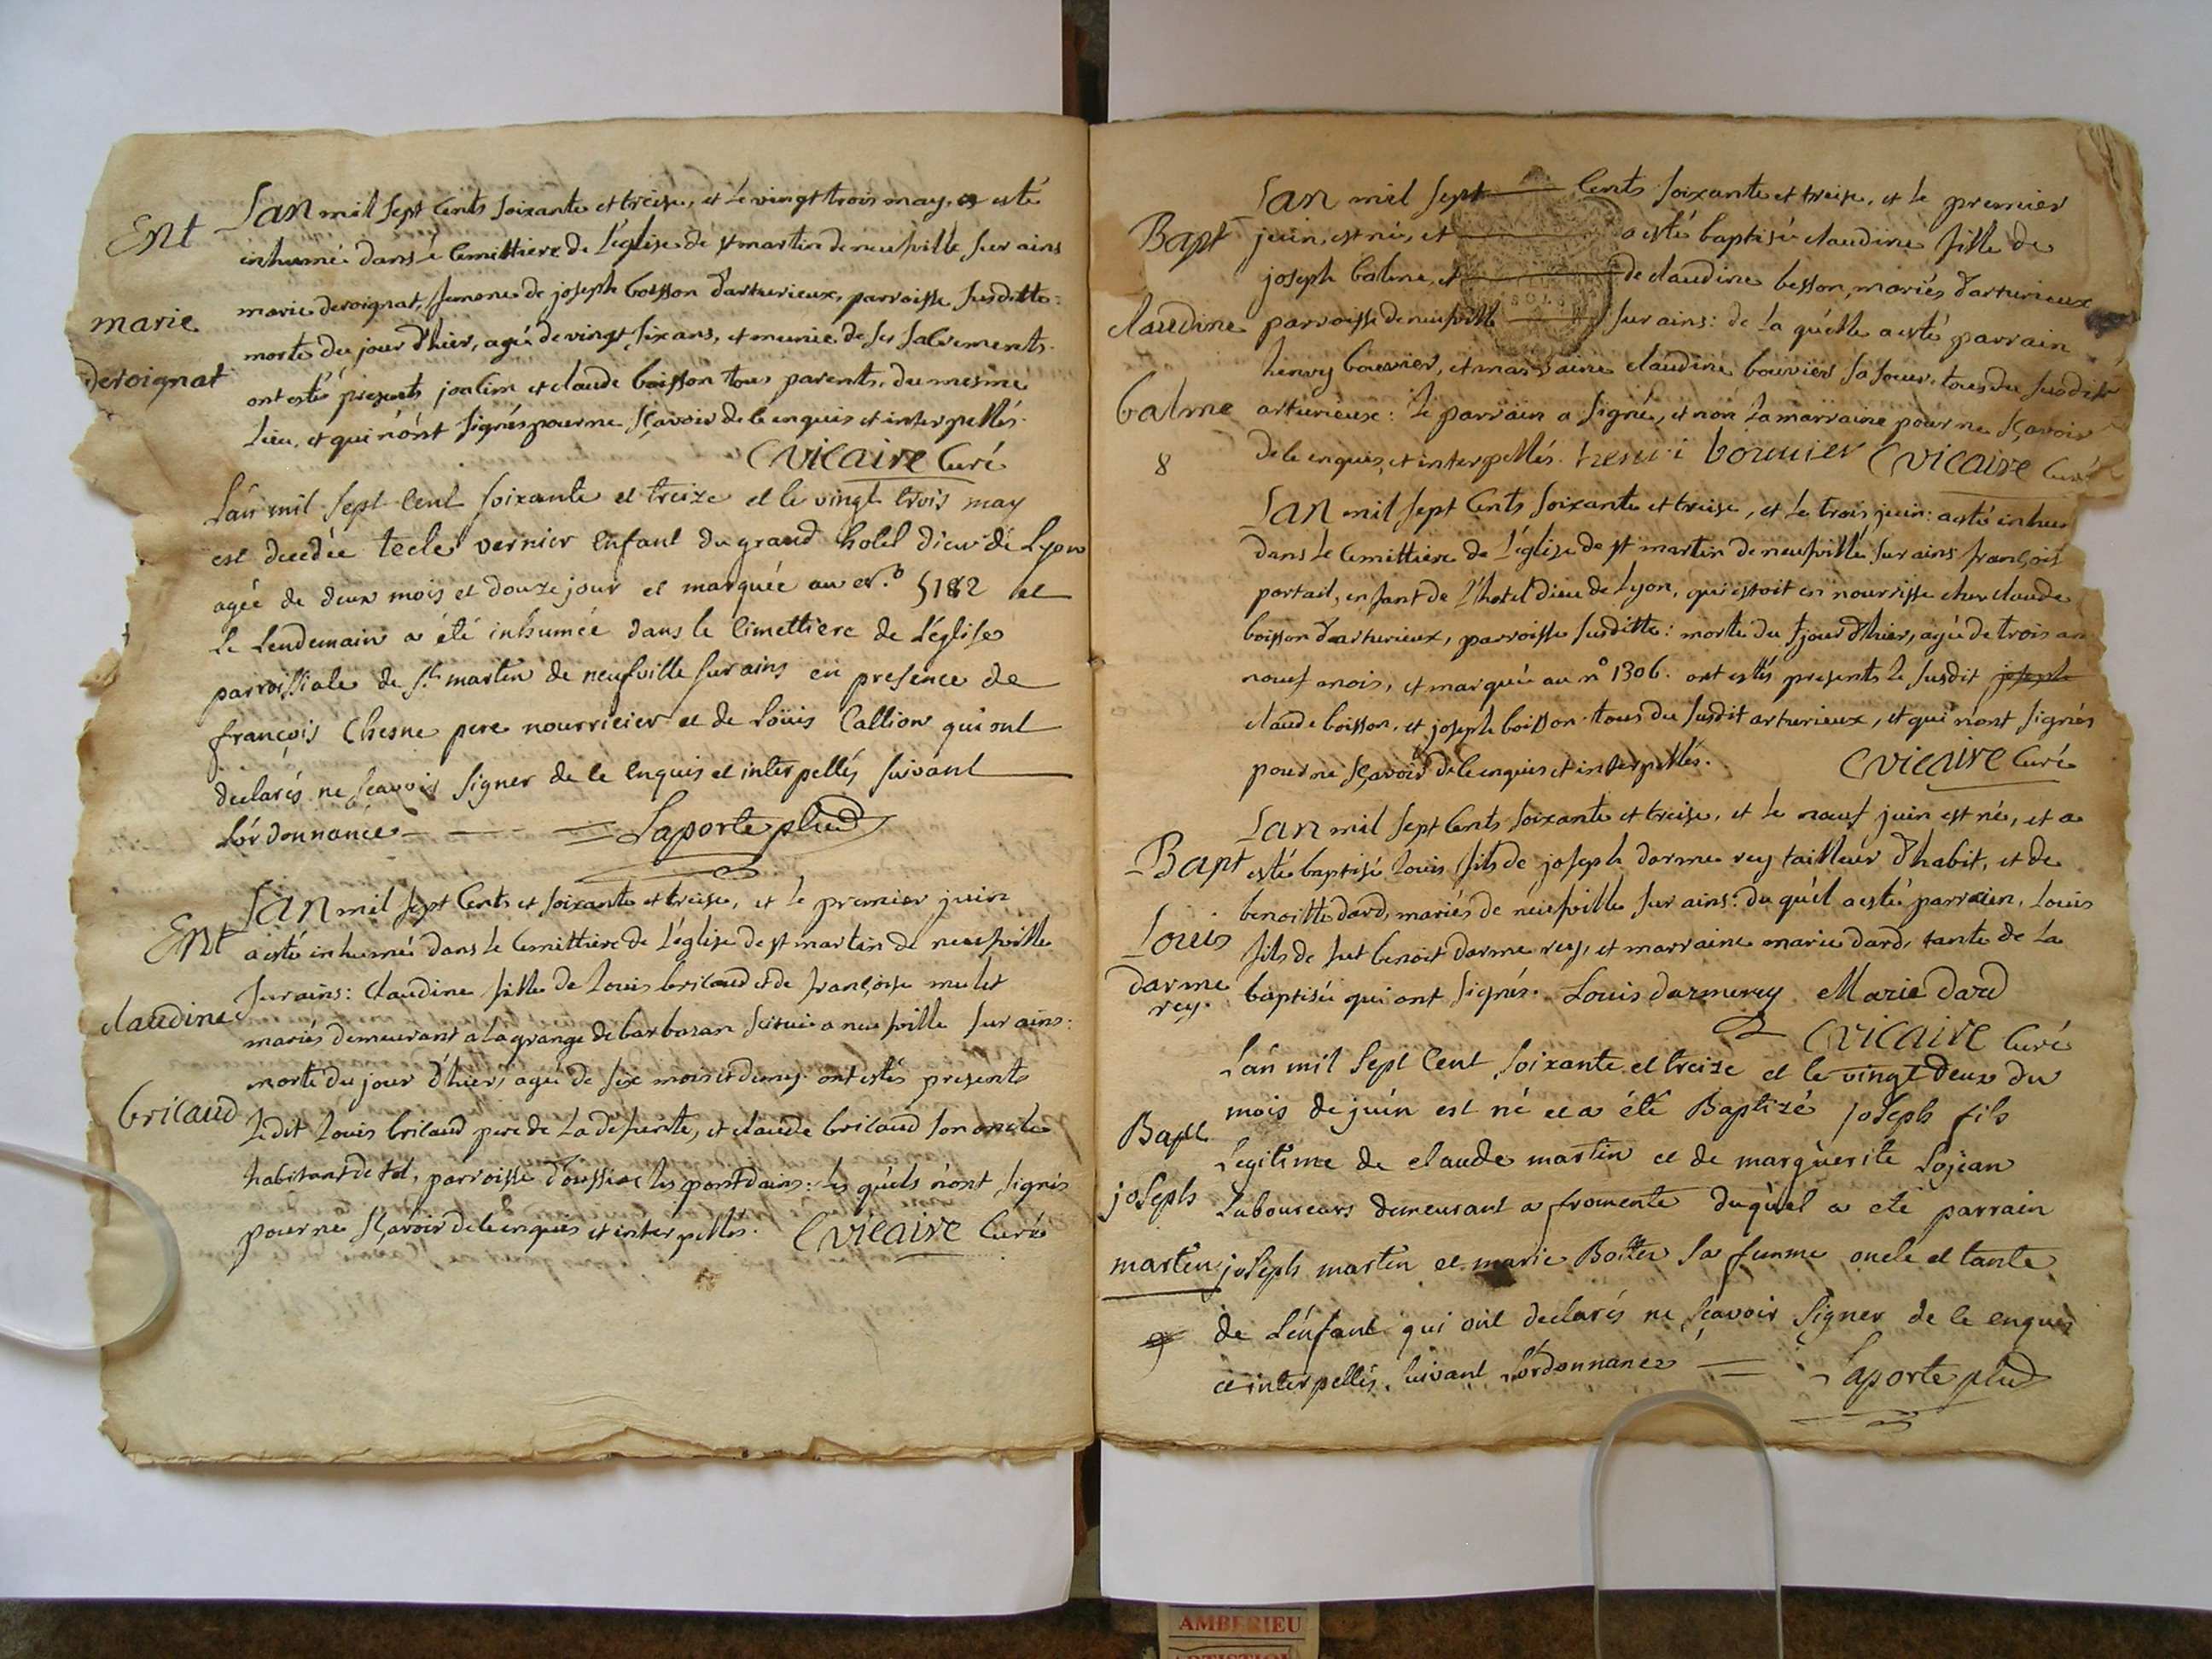 Ent
marie
deroignat
Lan mil sept Cents soixante et treise, et le vingt trois may, a esté
inhumé dans le Cemittiere de l'église de st martin de neufville sur ains
marie deroignat, femme de joseph boisson d'arturieux, parroisse susditte:
morte du jour d'hier, agée de vingt six ans, et munie de ses sacrements.
ont estés presents joachim et claude boisson tous parents, du mesme
Lieu, et qui n'ont signés pour ne sçavoir de ce enquis et interpellés.
C Vicaire Curé
L'an mil sept cent soixante et treize et le vingt trois may
est decedée tecle vernier enfant du grand hotel dieu de Lyon
agée de deux mois et douze jour et marquée au N.o 5182 et
le lendemain a été inhumée dans le cimettiere de l'église
parroissiale de st martin de neufville sur ains en presence de
françois Chesne pere nourricier et de Loüis Callion qui ont
declarés ne sçavoir signer de ce enquis et interpellés suivant
L'ordonnance Laporte plud
Ent
claudine
bricaud
Lan mil sept Cents et soixante et treise, et le premier juin
a esté inhumé dans le Cemittiere de l'église de st martin de neufville
sur ains: claudine fille de Louis bricaud et de françoise mulet
mariés demeurant a la grange de barbasan scituée a neufville sur ains:
morte du jour d'hier, agée de six mois et demy. ont estés presents
Ledit Louis bricaud pere de la defunte, et claude bricaud son oncle
habitant de tol, parroisse d'oussiat les pont dains: les quels n'ont signés
pour ne sçavoir de ce enquis et interpellés. C Vicaire Curé
Bapt
claudine
balme
8
Lan mil sept Cents soixante et treise, et le premier
juin, est né, et a esté baptisé claudine fille de
joseph balme, et de claudine besson, mariés d'arturieux
parroisse de neufville sur ains: de la quelle a esté parrain
henry bouvier, et marraine claudine bouvier sa soeur, tous du susdit
arturieux: le parrain a signé, et non la marraine pour ne sçavoir
de ce enquis, et interpellés. henri bouuier C Vicaire Curé
Lan mil sept Cents soixante et treise, et le trois juin: a esté inhu
dans le Cemittiere de l'église de st martin de neufville sur ains françois
portail, enfant de l'hotel dieu de Lyon, qui estoit en nourrisse chez claude
boisson d'arturieux, parroisse susditte: morte du jour d'hier, agée de trois an
neuf mois, et marquée au n° 1306. ont estés presents le susdit joseph
claude boisson, et joseph boisson tous du susdit arturieux, et qui n'ont signés
pour ne sçavoir de ce enquis et interpellés. C Vicaire Curé
Bapt
Louis
darme
rey.
Lan mil sept Cents soixante et treise, et le neuf juin est né, et a
esté baptisé Louis fils de joseph darme rey tailleur d'habit, et de
benoitte dard, mariés de neufville sur ains: du quel a esté parrain, Louis
fils de fut benoit darme rey, et marraine marie dard, tante de la
baptisée qui ont signés. Louis darmerey Marie dard
C Vicaire Curé
Bapt
joseph
martin
9
L'an mil sept cent soixante et treize et le vingt deux du
mois de juin est né et a été Baptizé joseph fils
Legitime de claude martin et de marguerite Lojean
Laboureurs demeurant a fromente duquel a eté parrain
joseph martin et marie Boitter sa femme oncle et tante
de L'enfant qui ont declarés ne sçavoir signer de ce enquis
et interpellés, suivant L'ordonnance Laporte plud
AMBERIEU